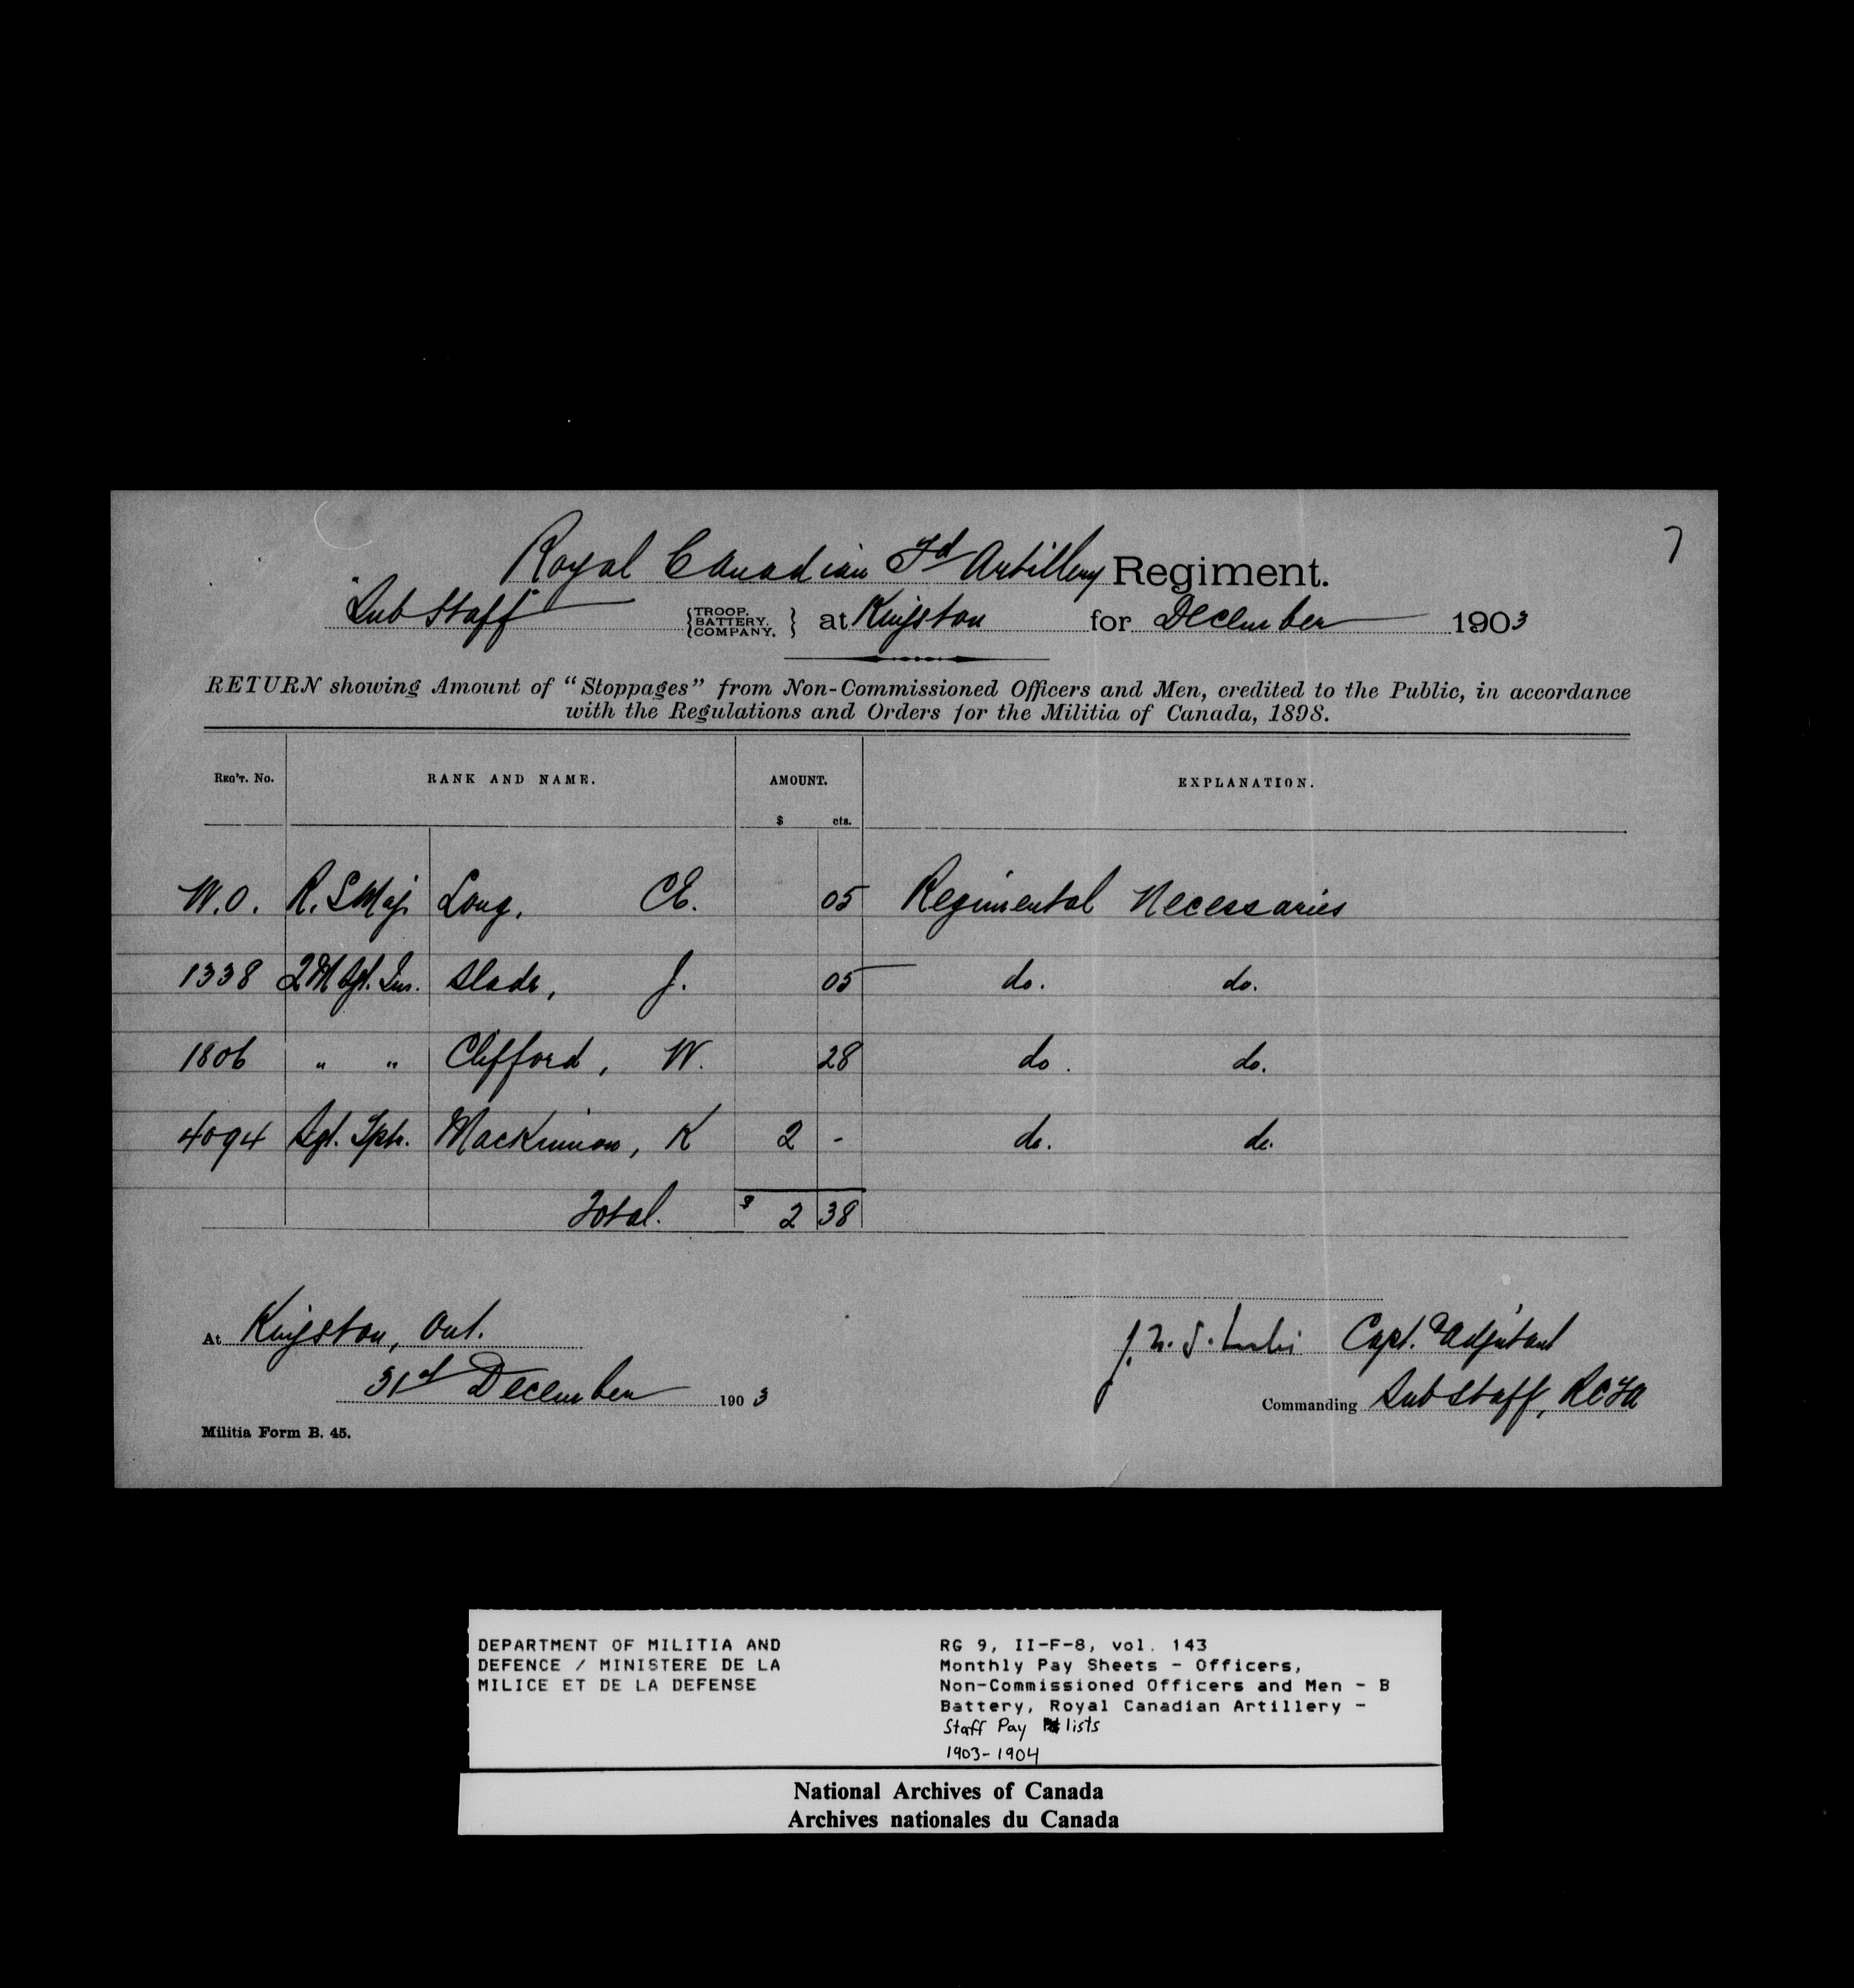 7
Royal Canadian Fd Artillery Regiment.
"Sub Staff" {TROOP, BATTERY, COMPANY,} at Kingston for December 1903
RETURN showing Amount of "Stoppages" from Non-Commissioned Officers and Men, credited to the Public, in accordance
with the Regulations and Orders for the Militia of Canada, 1898.
REG'T. No. RANK AND NAME. AMOUNT. EXPLANATION.
$ cts.
W.O. R. S Maj. Long, C E. 05 Regimental Necessaries
1338 Q M Sgt. Ins. Slade, J. 05 do. do.
1806 " " Clifford, W. 28 do. do.
4094 Sgt. Tptr. MacKinnon, K 2 - do. do.
Total. $ 2 38
At Kingston, Ont.
J. N. S. Capt. & Adjutant
31st December 1903
Commanding Sub Staff, RCFA
Militia Form B. 45.
DEPARTMENT OF MILITIA AND
DEFENCE / MINISTERE DE LA
MILICE ET DE LA DEFENSE
RG 9, II-F-8, vol. 143
Monthly Pay Sheets - Officers,
Non-Commissioned Officers and Men - B
Battery, Royal Canadian Artillery -
Staff Pay lists
1903-1904
National Archives of Canada
Archives nationales du Canada